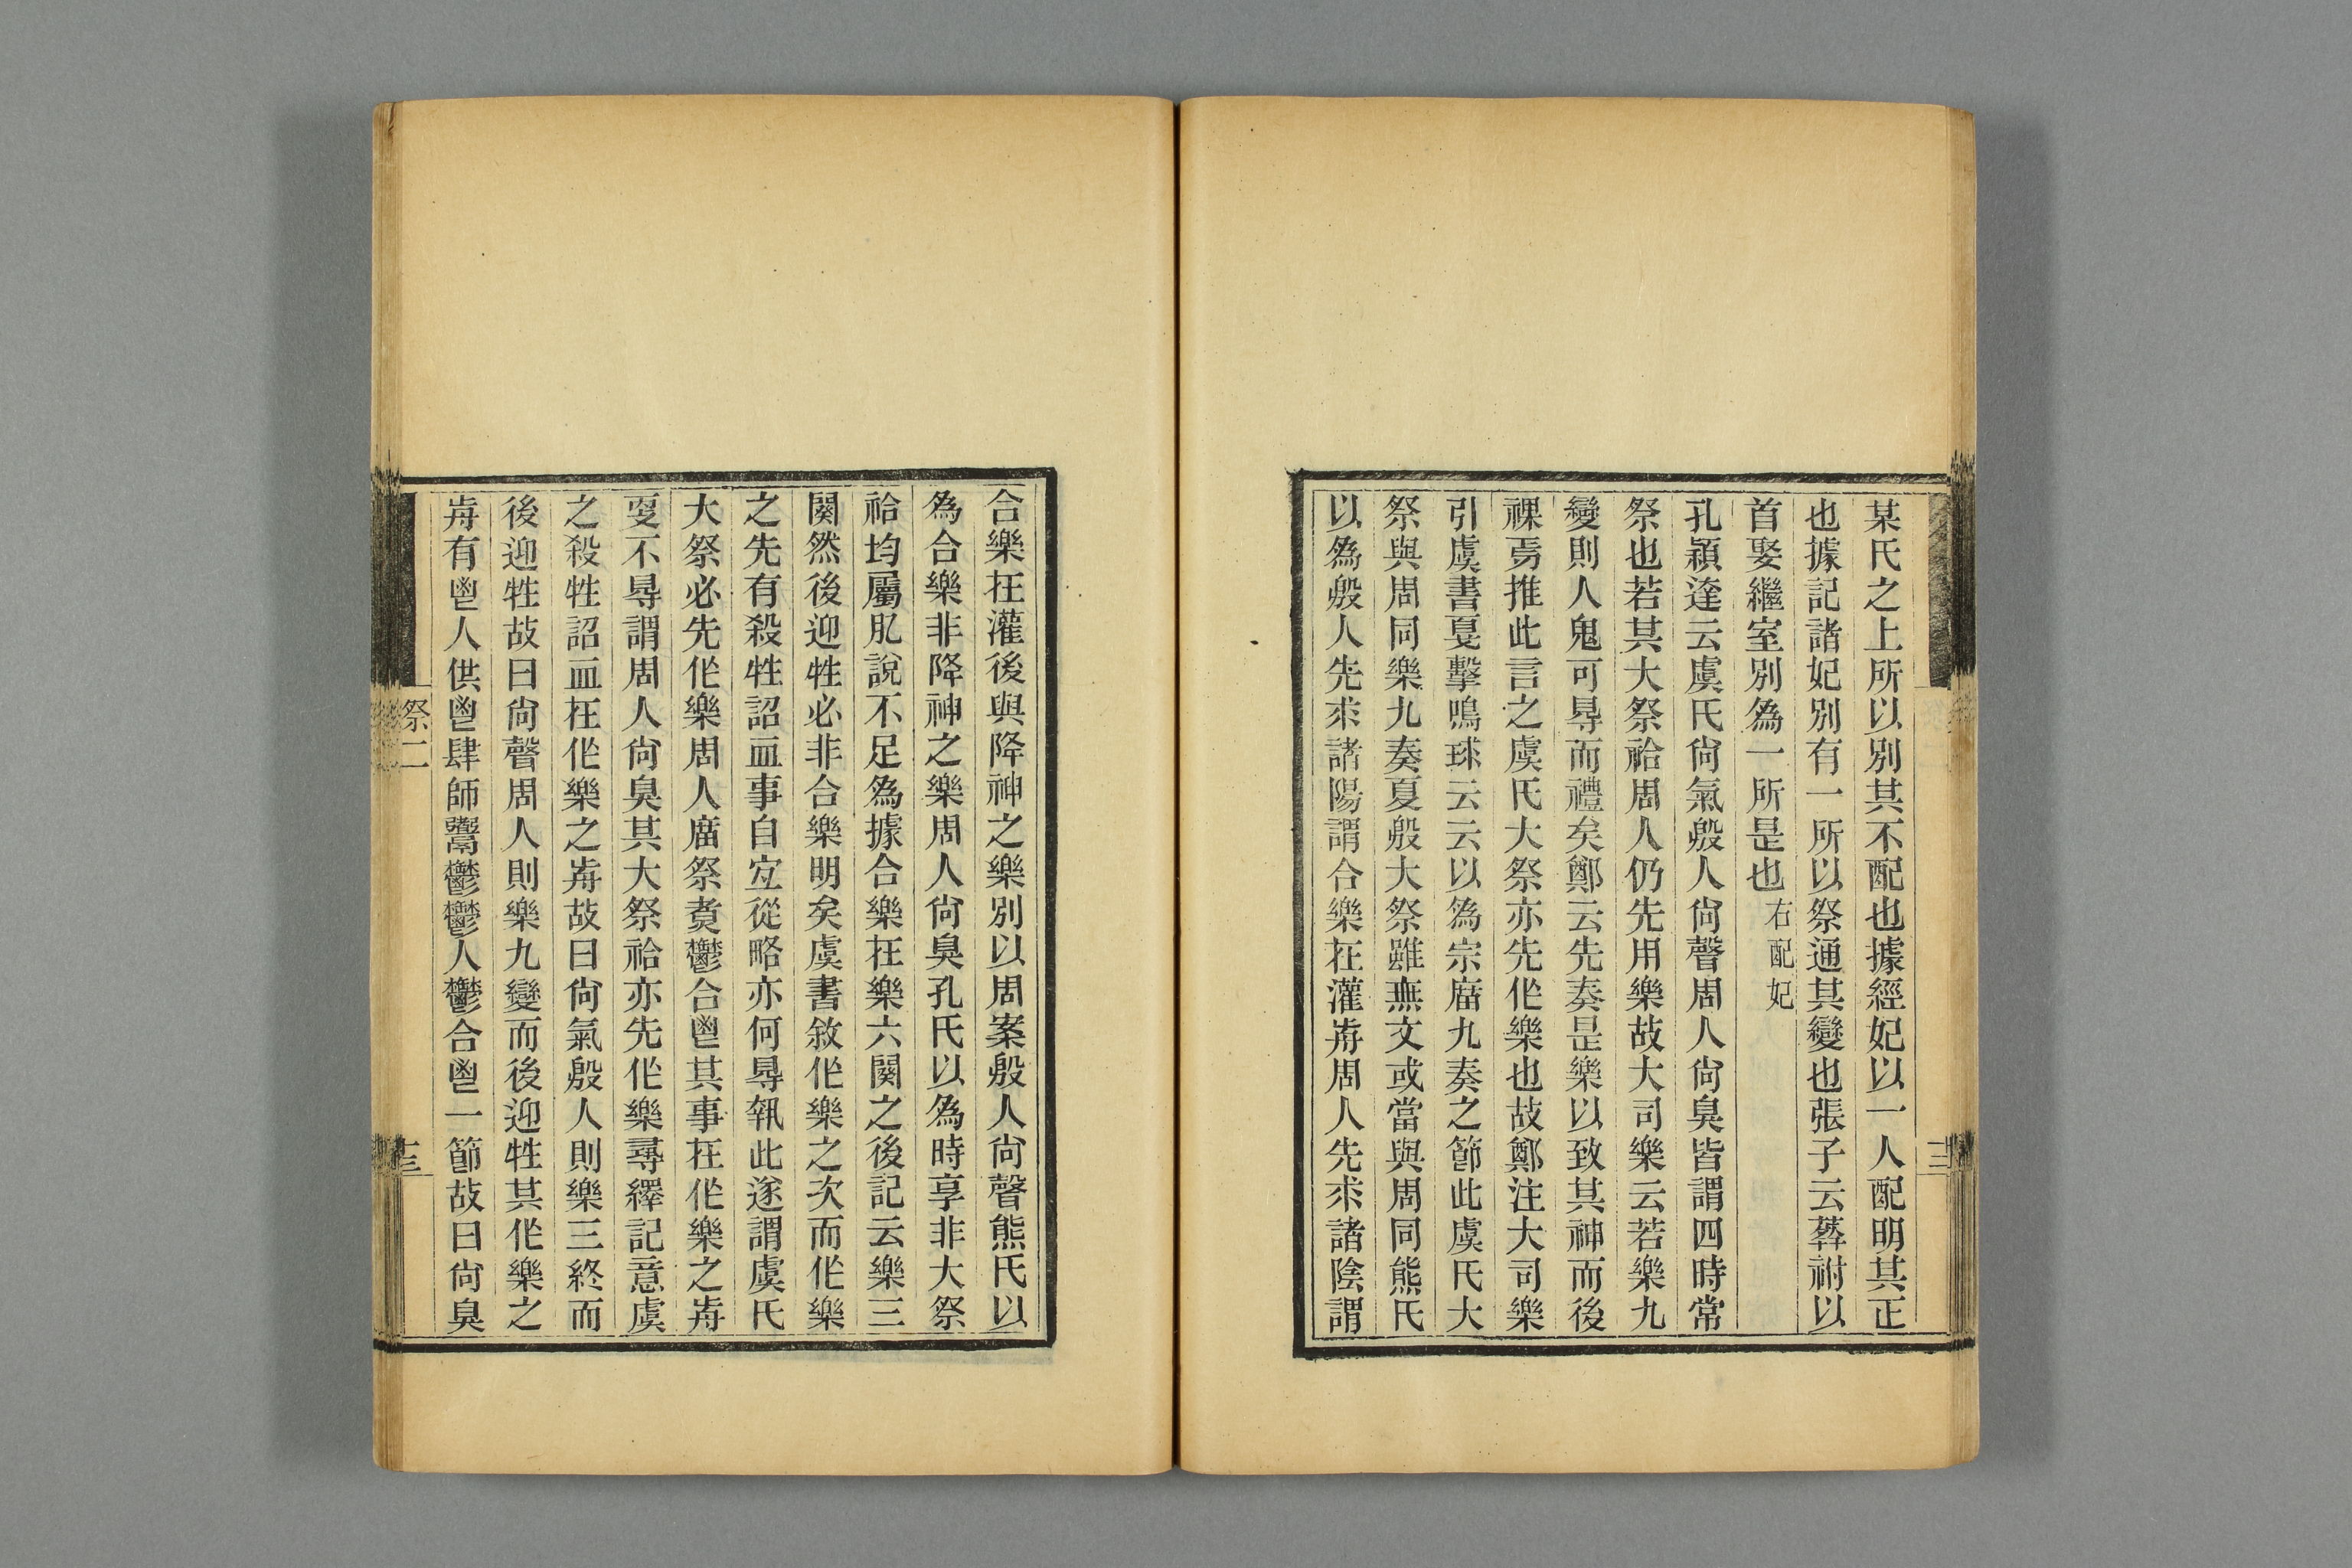 某氏之上所以別其不配也據經妃以一人配明其正
也據記諸妃別有一所以祭通其變也張子云葬祔以
首娶繼室別爲一所是也右配妃
孔穎達云虞氏尙氣殷人尙聲周人尙臭皆謂四時常
祭也若其大祭祫周人仍先用樂故大司樂云若樂九
變則人鬼可㝵而禮矣鄭云先奏是樂以致其神而後
祼焉推此言之虞氏大祭亦先作樂也故鄭注大司樂
引虞書戛擊鳴球云云以爲宗庿九奏之節此虞氏大
祭與周同樂九奏夏殷大祭雖無文或當與周同熊氏
以爲殷人先求諸陽謂合樂在灌歬周人先求諸陰謂
合樂在灌後與降神之樂別以周案殷人尙聲熊氏以
爲合樂非降神之樂周人尙臭孔氏以爲時享非大祭
祫均屬肊說不足爲據合樂在樂六闋之後記云樂三
闋然後迎牲必非合樂明矣虞書敘作樂之次而作樂
之先有殺牲詔血事自宐從略亦何㝵執此遂謂虞氏
大祭必先作樂周人庿祭煑鬱合鬯其事在作樂之歬
㪅不㝵謂周人尙臭其大祭祫亦先作樂尋繹記意虞
之殺牲詔血在作樂之歬故曰尙氣殷人則樂三終而
後迎牲故曰尙聲周人則樂九變而後迎牲其作樂之
歬有鬯人供鬯肆師鬻鬱鬱人鬱合鬯一節故曰尙臭
祭二
十三